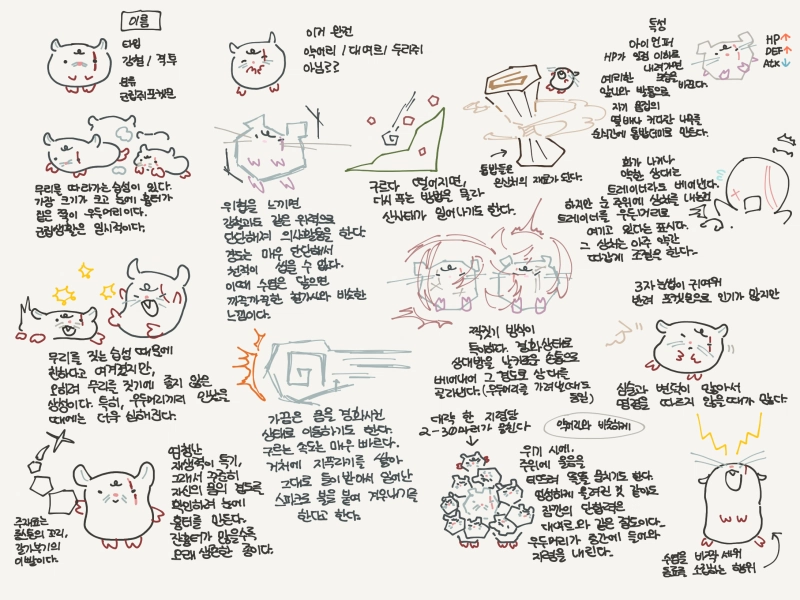 이름
타입
강철 / 격투
분류
군집쥐포켓몬
이거 완전
악어리 / 대여르 / 두리쥐
아님ㄹㄹ
무리를 따라가는 습성이 있다.
가장 크기가 크고 눈에 흉터가
짙은 쪽이 우두머리이다.
군집생활은 일시적이다.
위험을 느끼면
강철과도 같은 원석으로
단단해져 의사활동을 한다.
경도는 매우 단단해서
천적이 씹을 수 없다.
이때 수염은 닿으면
까끌까끌한 철가시와 비슷한
느낌이다.
구르다 떨어지면,
다시 푸는 방법을 몰라
산사태가 일어나기도 한다.
등반도는
원석의 재료가 된다.
특성
아이언
HP가 일정 이하로
내려가면
여리한
앞니와 발톱으로 바뀐다.
자기 몸집의
몇배나 커다란 나무를
순식간에 톱밥더미로 만든다.
HP↑
DEF↑
Atk↓
화가 나거나
약한 상대는
트레이너라도 베어낸다.
하지만 눈 주위에 상처를 내는건
트레이너를 우두머리로
여기고 있다는 표시다.
그 상처는 아주 약간
따갑게 조절은 한다.
무리를 짓는 습성 때문에
친하다고 여겨졌지만,
오히려 무리를 짓기에 좋지 않은
상성이다. 특히, 우두머리끼리 만났을
때에는 더욱 심해진다.
가끔은 몸을 경화시킨
상태로 이동하기도 한다.
구르는 속도는 매우 빠르다.
거처에 지푸라기를 쌓아
그대로 들이받아서 일어난
스파크로 불을 붙여 겨우나기를
한다고 한다.
짝짓기 방식이
특이하다. 경화상태로
상대방을 날카로운 손톱으로
베어내어 그 경도로 상대를
골라낸다. (우두머리를 가려낼때도
동일)
3자 눈썹이 귀여워
반려 포켓몬으로 인기가 많지만
심술과 변덕이 많아서
명령을 따르지 않을때가 많다.
엄청난
재생력이 특기,
그래서 구승히
자신의 몸의 경도를
확인하려 눈에
흉터를 만든다.
잔흉터가 많을수록
오래 생존한 종이다.
주재료는
롱스톤의 꼬리,
갈가부기의
이빨이다.
대략 한 지령당
2-30마리가 뭉친다
악어리와 비슷하게
위기 시에,
주위에 돌을
터뜨려 목숨을 훔치기도 한다.
엉성하게 올려진 것 같아도
잠깐의 단합력은
대여르와 같은 정도이다.
우두머리가 중간에 들어와
지령을 내린다.
수염을 바짝 세워
동료를 소집하는 행위